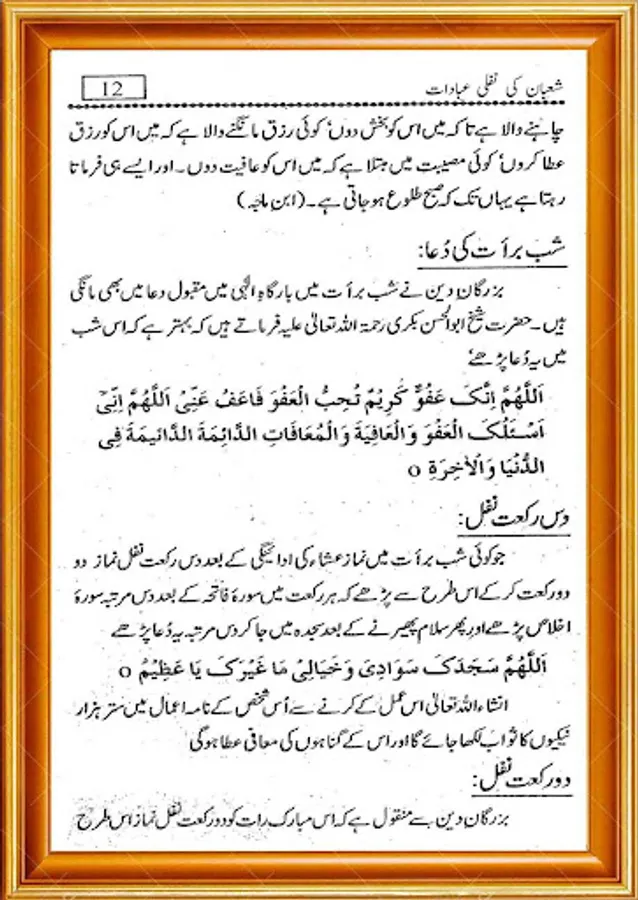 شعبان کی نفلی عبادات
12
چاہنے والا ہے تاکہ میں اس کو بخش دوں' کوئی رزق مانگنے والا ہے کہ میں اس کو رزق
عطا کروں' کوئی مصیبت میں مبتلا ہے کہ میں اس کو عافیت دوں۔ اور ایسے ہی فرماتا
رہتا ہے یہاں تک کہ صبح طلوع ہو جاتی ہے۔ (ابن ماجہ)
شب برأت کی دُعا:
بزرگان دین نے شب برأت میں بارگاہ الٰہی میں مقبول دعا میں بھی مانگی
ہیں۔ حضرت شیخ ابوالحسن بکری رحمۃ اللہ تعالیٰ علیہ فرماتے ہیں کہ بہتر ہے کہ اس شب
میں یہ دُعا پڑھئے
اَللّٰهُمَّ اِنَّکَ عَفُوٌّ کَرِیْمٌ تُحِبُّ الْعَفْوَ فَاعَفُ عَنِّیْ اَللّٰهُمَّ اِنِّیْ
اَسْئَلُکَ الْعَفْوَ وَالْعَافِیَةَ وَالْمُعَافَاتِ الدَّائِمَةَ الدَّائِیمَةَ فِی
الدُّنْیَا وَالْاٰخِرَةِ o
دس رکعت نفل:
جو کوئی شب برأت میں نماز عشاء کی ادائیگی کے بعد دس رکعت نفل نماز دو
دو رکعت کر کے اس طرح سے پڑھے کہ ہر رکعت میں سورۂ فاتحہ کے بعد دس مرتبہ سورۂ
اخلاص پڑھے اور پھر سلام پھیرنے کے بعد سجدہ میں جا کر دس مرتبہ یہ دُعا پڑھے
اَللّٰهُمَّ سَجَدَکَ سَوَادِیْ وَخَیَالِیْ مَا غَیْرَکَ یَا عَظِیْمُ o
انشاء اللہ تعالیٰ اس عمل کے کرنے سے اُس شخص کے نامہ اعمال میں ستر ہزار
نیکیوں کا ثواب لکھا جائے گا اور اس کے گناہوں کی معافی عطا ہوگی
دو رکعت نفل:
بزرگان دین سے منقول ہے کہ اس مبارک رات کو دو رکعت نفل نماز اس طرح